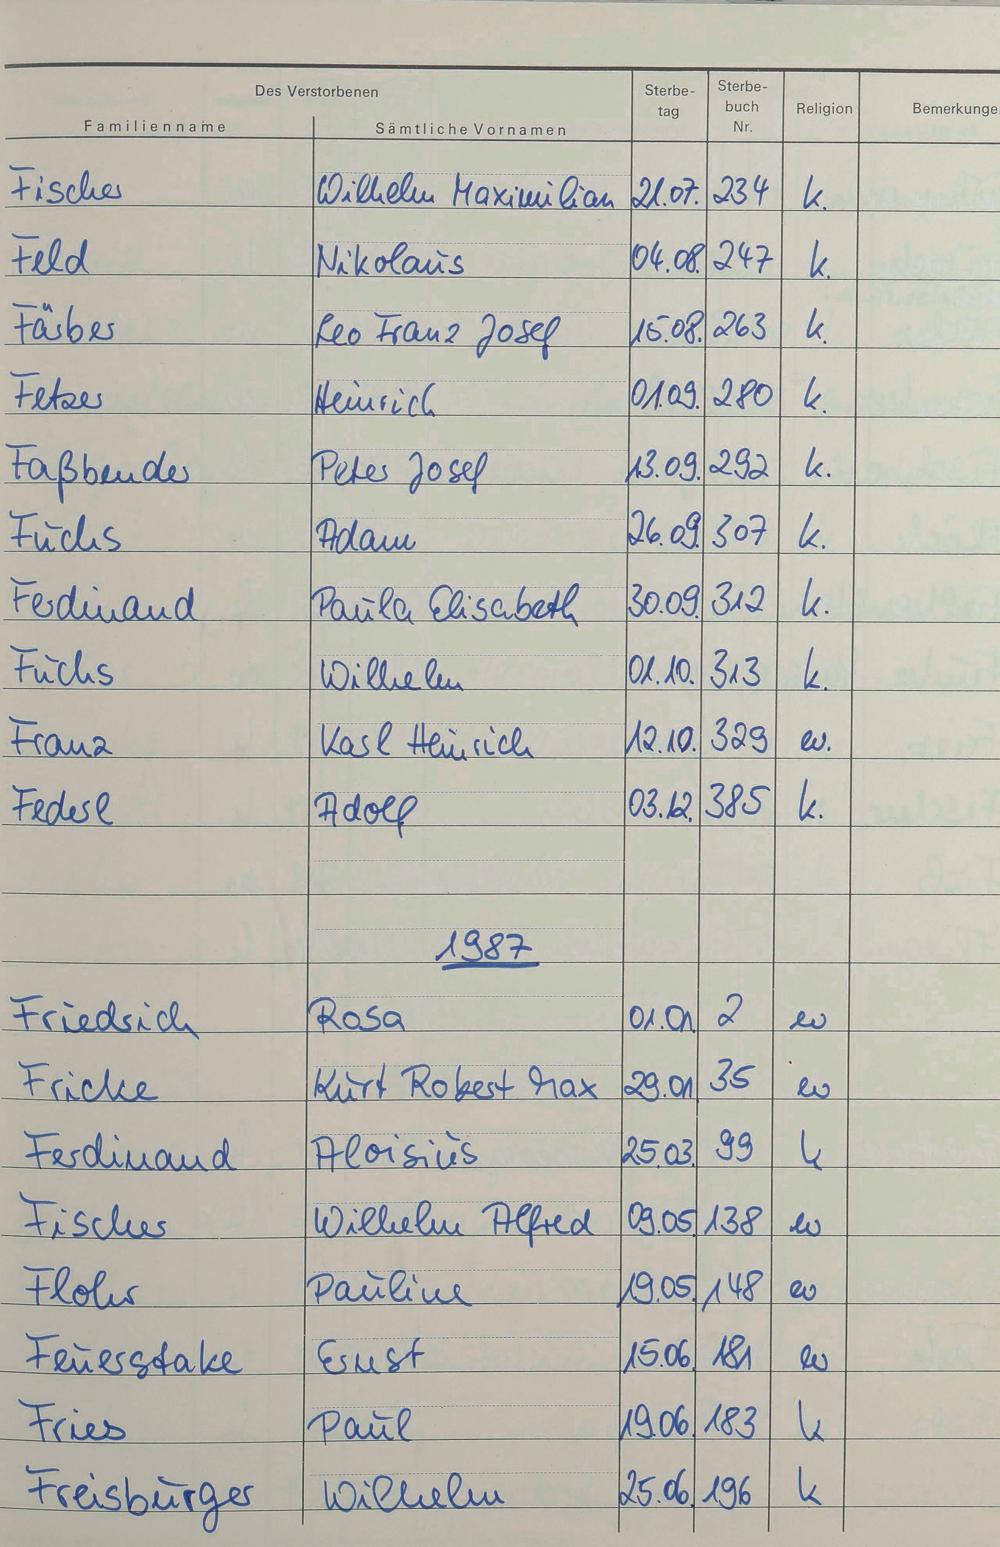 Des Verstorbenen
Familienname Sämtliche Vornamen Sterbe-tag Sterbe-buch Nr. Religion Bemerkunge
Fischer Wilhelm Maximilian 21.07. 234 k.
Feld Nikolaus 04.08. 247 k.
Färber Leo Franz Josef 15.08. 263 k.
Fetzer Heinrich 01.09. 280 k.
Faßbender Peter Josef 13.09. 292 k.
Fuchs Adam 26.09. 307 k.
Ferdinand Paula Elisabeth 30.09. 312 k.
Fuchs Wilhelm 01.10. 313 k.
Franz Karl Heinrich 12.10. 329 ev.
Federl Adolf 03.12. 385 k.
1987
Friedrich Rosa 01.01 2 ev
Fricke Kurt Robert Max 29.01 35 ev
Ferdinand Aloisius 25.03. 99 k
Fischer Wilhelm Alfred 09.05 138 ev
Flohr Pauline 19.05. 148 ev
Feuerstake Ernst 15.06 181 ev
Fries Paul 19.06 183 k
Freisburger Wilhelm 25.06. 196 k